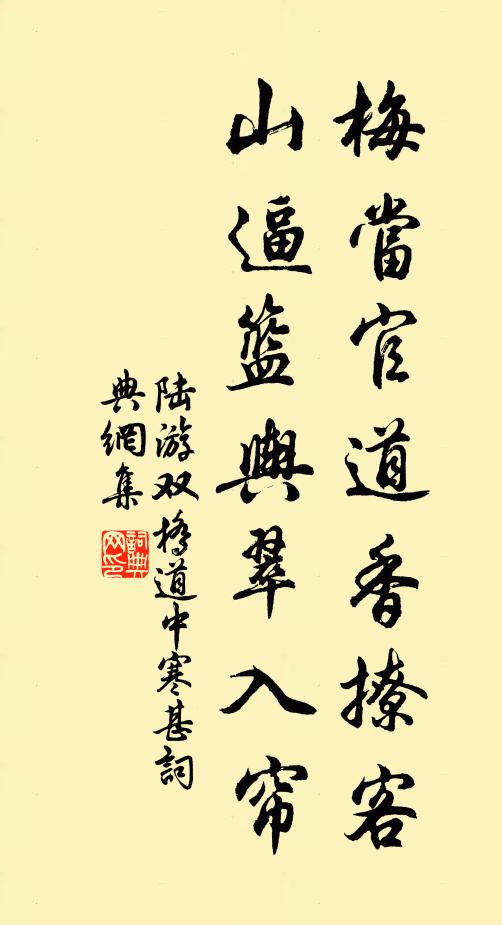 梅當官道香撩客
山逼籃輿翠入帘
陆游双橋道中寒甚詞
典網集
詞典
网印